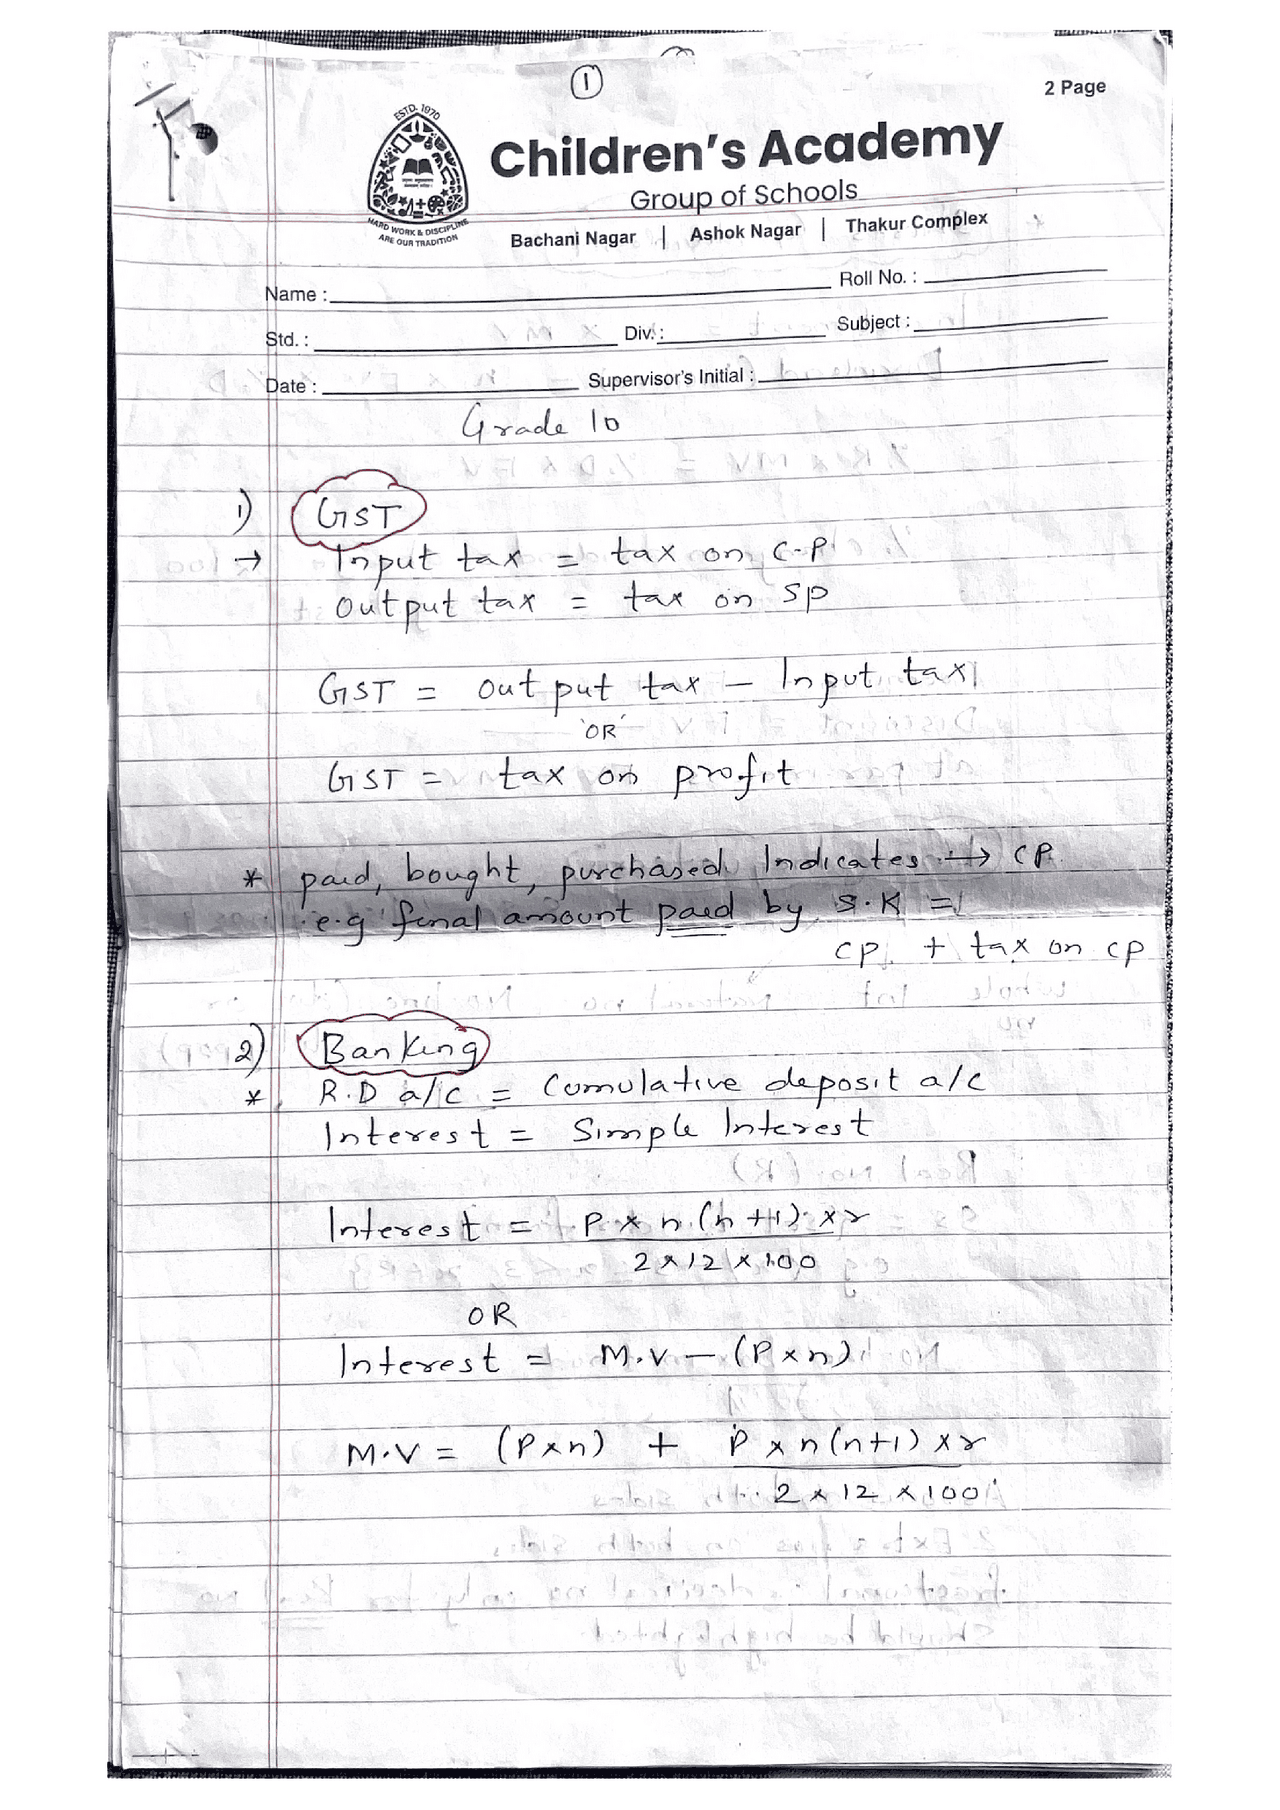 1
2 Page
ESTD. 1970
HARD WORK & DISCIPLINE
ARE OUR TRADITION
Children's Academy
Group of Schools
Bachani Nagar | Ashok Nagar | Thakur Complex
Name : Roll No. :
Std. : Div. : Subject :
Date : Supervisor's Initial :
Grade 10
1) GST
→ Input tax = tax on C.P
Output tax = tax on SP
GST = output tax – Input tax
OR
GST = tax on profit
* paid, bought, purchased Indicates → CP
e.g final amount paid by S.K =
CP + tax on CP
2) Banking
* R.D a/c = Cumulative deposit a/c
Interest = Simple Interest
Interest = P × n (n+1) × r
2 × 12 × 100
OR
Interest = M.V – (P × n)
M.V = (P × n) + P × n (n+1) × r
2 × 12 × 100